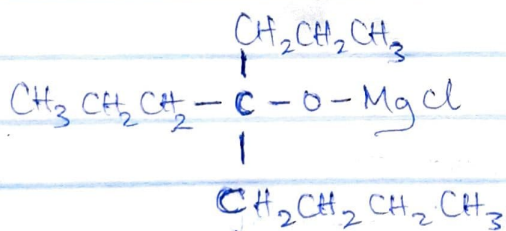 CH₂CH₂CH₃
CH₃CH₂CH₂-C-O-MgCl
CH₂CH₂CH₂CH₃